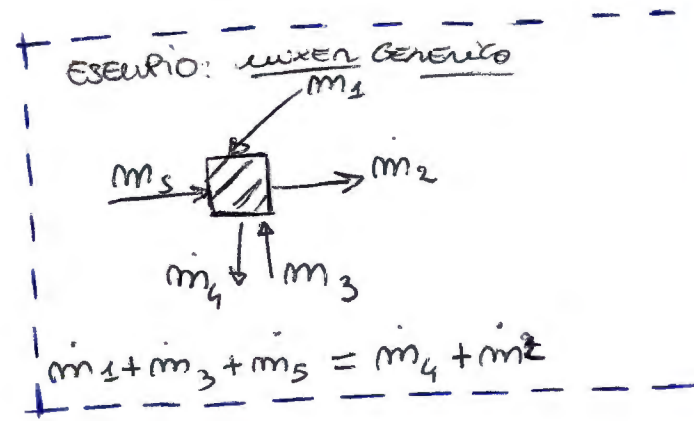 ESEMPIO: MIXER GENERICO
m1
m5
ṁ2
ṁ4
m3
ṁ1+ṁ3+ṁ5 = ṁ4+ṁ2